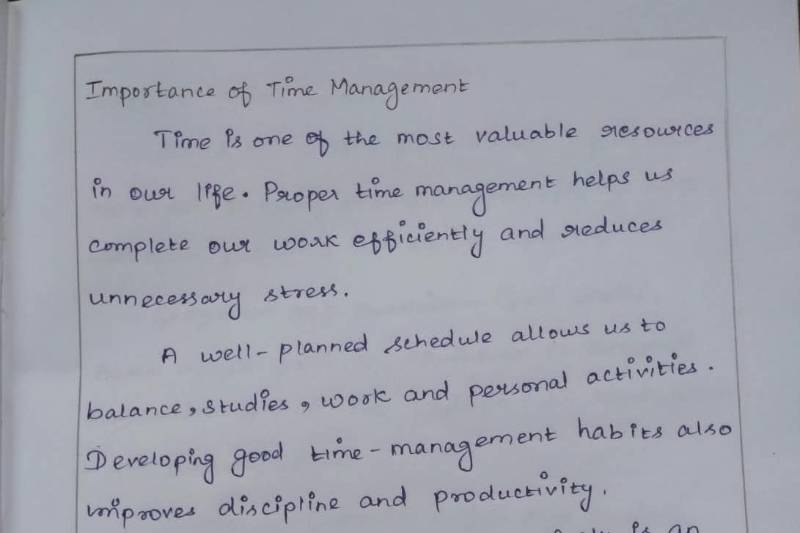 Importance of Time Management
Time is one of the most valuable resources
in our life. Proper time management helps us
complete our work efficiently and reduces
unnecessary stress.
A well-planned schedule allows us to
balance, studies, work and personal activities.
Developing good time-management habits also
improves discipline and productivity.
is an